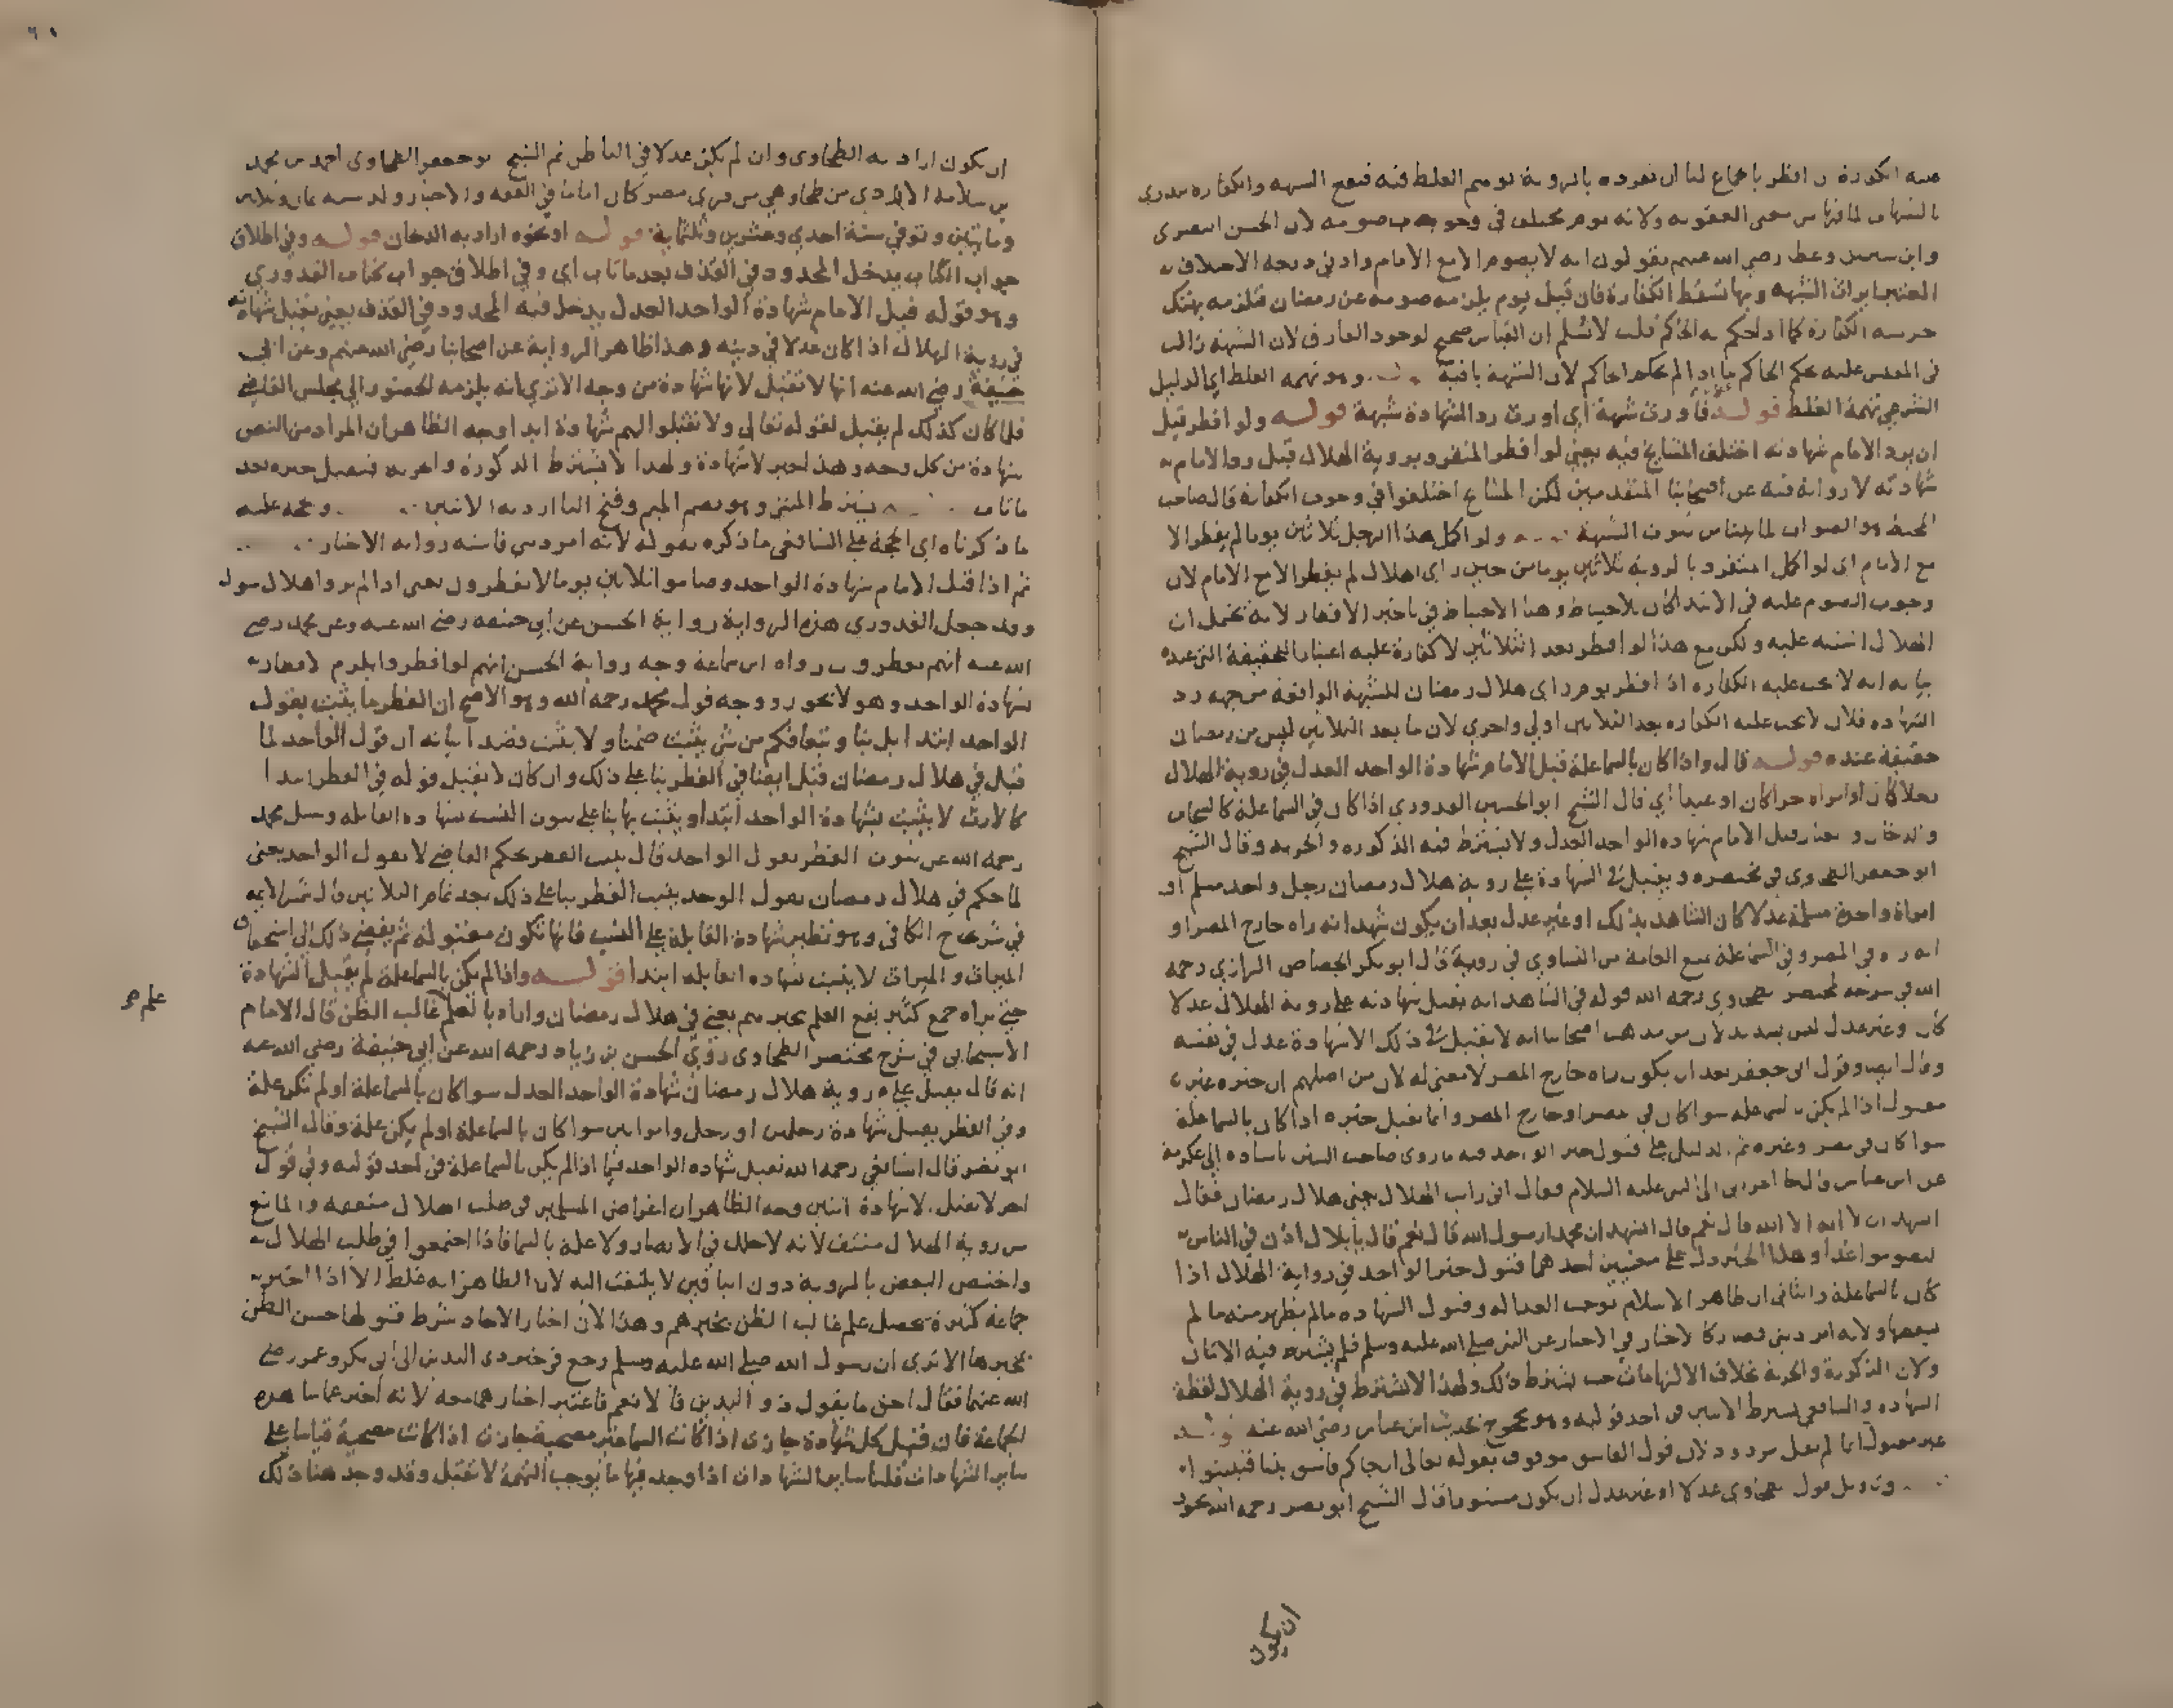 عليه الكفارة ان افطر باجماع لنا ان تفرده بالروية يوهم الغلط فيه فيقع الشبهة والكفارة تندري
بالشبهات لما فيها من معنى العقوبة ولانه يوم مختلف في وجوب صومه لان الحسن البصري
وابن سيرين وعطا رضي الله عنهم يقولون انه لا يصوم الا مع الامام وادنى درجة الاختلاف
المعتبر ايراث الشبهة وبها تسقط الكفارة فان قيل يوم يلزمه صومه عن رمضان فتلزمه بهتك
حرمته الكفارة كما اذا حكم به الحاكم قلت لا نسلم ان القياس صحيح لوجود الفارق لان الشبهة زالت
في المقيس عليه بحكم الحاكم ما اذا لم يحكم الحاكم لان الشبهة باقية وهو تهمة الغلط اي الدليل
الشرعي تهمة الغلط قوله فاورث شبهة اي اورث رد الشهادة شبهة قوله ولو افطر قبل
ان يرد الامام شهادته اختلف المشايخ فيه يعني لو افطر المنفرد بروية الهلال قبل رد الامام
شهادته لا رواية فيه عن اصحابنا المتقدمين لكن المشايخ اختلفوا في وجوب الكفارة قال صاحب
المحيط والصواب لما ثبوت الشبهة ولو اكمل هذا الرجل ثلاثين يوما لم يفطر الا
مع الامام اي لو اكمل المنفرد بالروية ثلاثين يوما من حين راى الهلال لم يفطر الا مع الامام لان
وجوب الصوم عليه في الابتداء كان للاحتياط وهنا الاحتياط في تاخير الافطار لانه يحتمل ان
الهلال اشتبه عليه ولكن مع هذا لو افطر بعد الثلاثين لا كفارة عليه اعتبارا للحقيقة التي عنده
بيانه انه لا تجب عليه الكفارة اذا افطر يوم راى هلال رمضان للشبهة الواقعة من جهة رد
الشهادة فلان لا تجب عليه الكفارة بعد الثلاثين اولى واحرى لان ما بعد الثلاثين ليس من رمضان
حقيقة عنده قوله قال واذا كان بالسما علة قبل الامام شهادة الواحد العدل في روية الهلال
رجلا كان او امراة حرا كان او عبدا اي قال الشيخ ابو الحسين القدوري اذا كان في السما علة كالسحاب
والدخان والغبار قبل الامام شهادة الواحد العدل ولا يشترط فيه الذكورة والحرية وقال الشيخ
ابو جعفر الطحاوي في مختصره ويقبل في الشهادة على روية هلال رمضان رجل واحد مسلم او
امراة واحدة مسلمة عدلا كان الشاهد بذلك او غير عدل بعد ان يكون شهد انه راه خارج المصر او
انه راه في المصر وفي السما علة تمنع العامة من التساوي في رويته قال ابو بكر الجصاص الرازي رحمه
الله في شرحه لمختصر الطحاوي رحمه الله قوله في الشاهد انه تقبل شهادته على روية الهلال عدلا
كان او غير عدل ليس بسديد لان من مذهب اصحابنا انه لا تقبل في ذلك الا شهادة عدل في نفسه
وقال ايضا وقول ابي جعفر بعد ان يكون راه خارج المصر لا معنى له لان من اصلهم ان خبره غير
مقبول اذا لم يكن بالسما علة سوا كان في مصر او خارج المصر وانما تقبل خبره اذا كان بالسما علة
سوا كان في مصر وغيره ثم الدليل على قبول خبر الواحد فيه ما روى صاحب السنن باسناده الى عكرمة
عن ابن عباس قال جا اعرابي الى النبي عليه السلام فقال اني رايت الهلال يعني هلال رمضان فقال
اتشهد ان لا اله الا الله قال نعم قال اتشهد ان محمدا رسول الله قال نعم قال يا بلال اذن في الناس
ليصوموا غدا وهذا الخبر دل على معنيين احدهما قبول خبر الواحد في رواية الهلال اذا
كان بالسما علة والثاني ان ظاهر الاسلام توجب العدالة وقبول الشهادة ما لم يظهر منه ما لم
ولانه امر ديني فصار كالاخبار في الاخبار عن النبي صلى الله عليه وسلم فلم يشترط فيه الاثنان
ولان الذكورة والحرية بخلاف الالزامات حيث يشترط ذلك ولهذا لا تشترط في روية الهلال لفظة
الشهادة والشافعي يشترط الاثنين في احد قوليه وهو محجوج بحديث ابن عباس رضي الله عنه
غير مقبول انما لم يقل مردود لان قول الفاسق موقوف بقوله تعالى ان جاكم فاسق بنبا فتبينوا
وتاويل قول الطحاوي عدلا او غير عدل ان يكون مستورا قال الشيخ ابو نصر رحمه الله يجوز
ان يكون
ان يكون اراد به الطحاوي وان لم يكن عدلا في الباطن ثم الشيخ ابو جعفر الطحاوي احمد بن محمد
بن سلامة الازدي من طحا وهي من قرى مصر كان اماما في الفقه والاخبار ولد سنة ثمان وثلاثين
ومايتين وتوفي سنة احدي وعشرين وثلثماية قوله او نحوه اراد به الدخان قوله وفي اطلاق
جواب الكتاب يدخل المحدود في القذف بعد ما تاب اي وفي اطلاق جواب كتاب القدوري
وهو قوله قبل الامام شهادة الواحد العدل يدخل فيه المحدود في القذف يعني يقبل شهادته
في روية الهلال اذا كان عدلا في دينه وهذا ظاهر الرواية عن اصحابنا رضي الله عنهم وعن ابي
حنيفة رضي الله عنه انها لا تقبل لانها شهادة من وجه الا ترى انه يلزمه الحضور الى مجلس القاضي
فلما كان كذلك لم يقبل لقوله تعالى ولا تقبلوا لهم شهادة ابدا وجه الظاهر ان المراد من النص
شهادة من كل وجه وهذا خبر لا شهادة ولهذا لا تشترط الذكورة والحرية فيقبل خبره بعد
ما تاب يشترط المثنى وهو بضم الميم وفتح الثا اراد به الاثنين والحجة عليه
ما ذكرناه اي الحجة على الشافعي ما ذكره بقوله لانه امر ديني فاشبه رواية الاخبار
ثم اذا قبل الامام شهادة الواحد وصاموا ثلاثين يوما لا يفطرون يعني اذا لم يروا هلال شوال
وقد جعل القدوري هذه الرواية رواية الحسن عن ابي حنيفة رضي الله عنه وعن محمد رضي
الله عنه انهم يفطرون رواه ابن سماعة وجه رواية الحسن انهم لو افطروا يلزم الافطار
بشهادة الواحد وهو لا يجوز ووجه قول محمد رحمه الله وهو الاصح ان الفطر ما يثبت بقول
الواحد ابتدا بل بنا وتبعا فكم من شي يثبت ضمنا ولا يثبت قصدا بيانه ان قول الواحد لما
قبل في هلال رمضان قبل ايضا في الفطر بنا على ذلك وان كان لا يقبل قوله في الفطر ابتدا
كالارث لا يثبت بشهادة الواحد ابتدا ويثبت بها بنا على ثبوت النسب بشهادة القابلة وسئل محمد
رحمه الله عن ثبوت الفطر بقول الواحد قال يثبت الفطر بحكم القاضي لا بقول الواحد يعني
لما حكم في هلال رمضان بقول الواحد يثبت الفطر بنا على ذلك بعد تمام الثلاثين قال شمس الايمة
في شرح الكافي وهو نظير شهادة القابلة على النسب فانها تكون مقبولة ثم يفضي ذلك الى استحقاق
الميراث والميراث لا يثبت بشهادة القابلة ابتدا قوله واذا لم يكن بالسما علة لم يقبل الشهادة
حتى يراه جمع كثير يقع العلم بخبرهم يعني في هلال رمضان وارادبالعلم غالب الظن قال الامام
الاسبيجابي في شرح مختصر الطحاوي روى الحسن بن زياد رحمه الله عن ابي حنيفة رضي الله عنه
انه قال يقبل على روية هلال رمضان شهادة الواحد العدل سوا كان بالسما علة او لم تكن علة
وفي الفطر يقبل شهادة رجلين او رجل وامراتين سوا كان بالسما علة او لم يكن علة وقال الشيخ
ابو نصر قال الشافعي رحمه الله تقبل شهادة الواحد فيما اذا لم يكن بالسما علة في احد قوليه وفي قول
اخر لا يقبل الا شهادة اثنين وجه الظاهر ان اغراض المسلمين في طلب الهلال متفقة والمانع
من روية الهلال منتف لانه لا خلل في الابصار ولا علة بالسما فاذا اجتمعوا في طلب الهلال
واختص البعض بالروية دون الباقين لا يلتفت اليه لان الظاهر انه غلط الا اذا اخبر
جماعة كثيرة يحصل علم غالب الظن بخبرهم وهذا لان اخبار الاحاد شرط قبولها حسن الظن
بخبرها الا ترى ان رسول الله صلى الله عليه وسلم رجع في خبر ذي اليدين الى ابي بكر وعمر رضي
الله عنهما فقال احق ما يقول ذو اليدين قالا نعم فاعتبر اخبارهما معه لانه اخبر عما شاهده
الجماعة فان قيل كل شهادة جازت اذا كانت السما غير مصحية جازت اذا كانت مصحية قياسا على
ساير الشهادات قلنا ساير الشهادات اذا وجد فيها ما يوجب التهمة لا تقبل وقد وجد هنا ذلك
علم م
٦٠